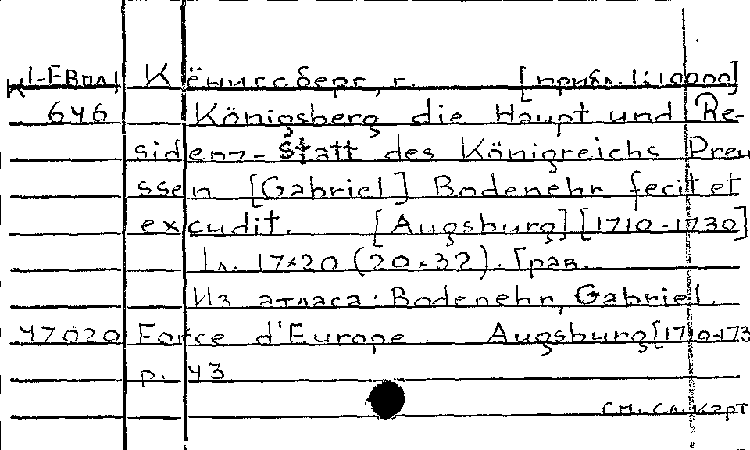 К1-ЕВпл1 Кёнигсберг, г. [прибл. 1:10000]
646 Königsberg die Haupt und Re-
sidenz-Statt des Königreichs Preu
ssen [Gabriel] Bodenehr fecit et
excudit. [Augsburg] [1710-1730]
1 л. 17×20 (20×32). Грав.
Из атласа: Bodenehr, Gabriel.
47020 Force d'Europe Augsburg [1710-173
p. 43
см. сл. карт